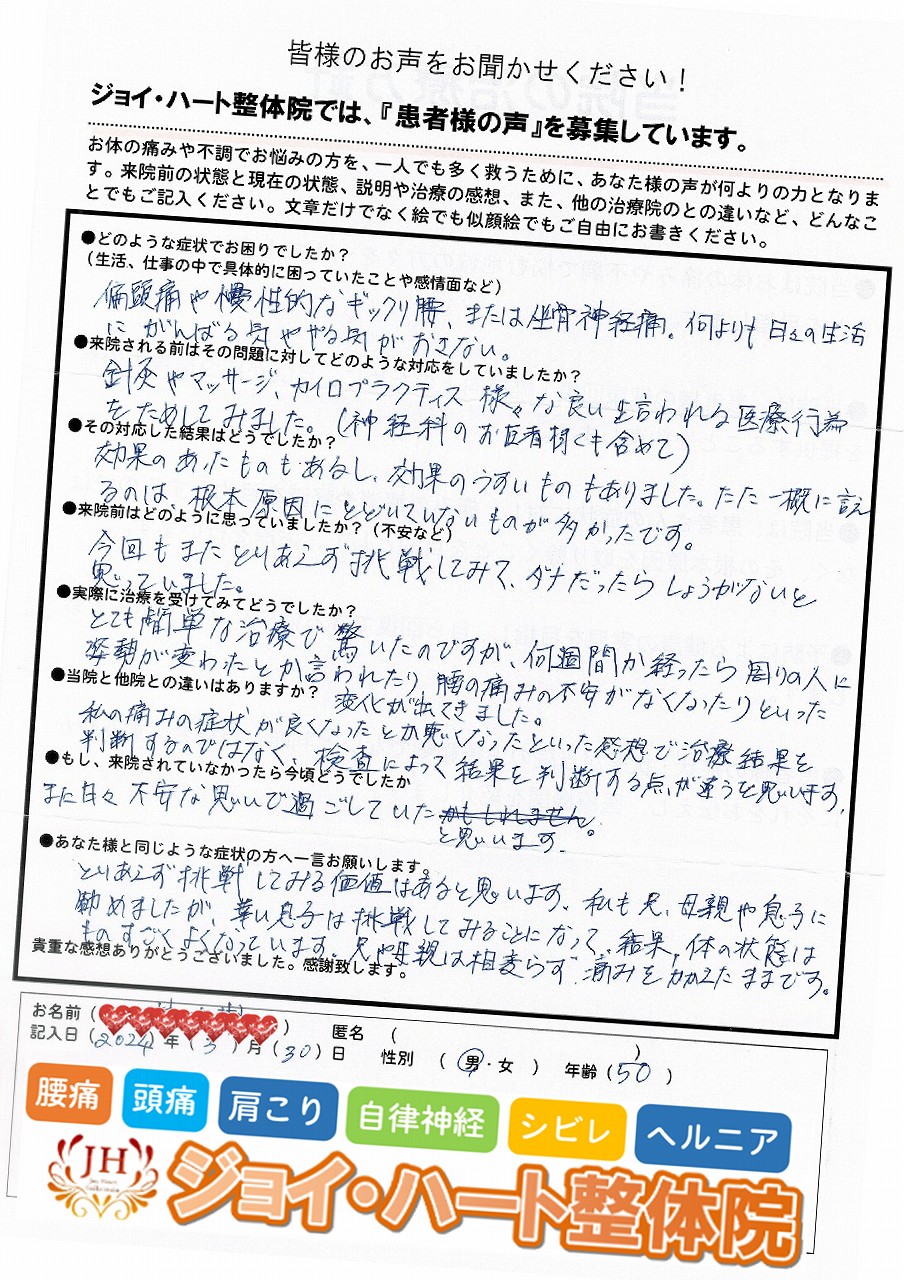 皆様のお声をお聞かせください！
ジョイ・ハート整体院では、『患者様の声』を募集しています。
お体の痛みや不調でお悩みの方を、一人でも多く救うために、あなた様の声が何よりの力となりま
す。来院前の状態と現在の状態、説明や治療の感想、また、他の治療院のとの違いなど、どんなこ
とでもご記入ください。文章だけでなく絵でも似顔絵でもご自由にお書きください。
●どのような症状でお困りでしたか？
（生活、仕事の中で具体的に困っていたことや感情面など）
偏頭痛や慢性的なギックリ腰、または坐骨神経痛。何よりも日々の生活
にがんばる気ややる気がおきない。
●来院される前はその問題に対してどのような対応をしていましたか？
針灸やマッサージ、カイロプラクティス様々な良いと言われる医療行為
をためしてみました。（神経科のお医者様も含めて）
●その対応した結果はどうでしたか？
効果のあったものもあるし、効果のうすいものもありました。ただ一概に言え
るのは、根本原因にとどいていないものが多かったです。
●来院前はどのように思っていましたか？（不安など）
今回もまたとりあえず挑戦してみて、ダメだったらしょうがないと
思っていました。
●実際に治療を受けてみてどうでしたか？
とても簡単な治療で驚いたのですが、何週間か経ったら周りの人に
姿勢が変わったとか言われたり、腰の痛みの不安がなくなったりといった
変化が出てきました。
●当院と他院との違いはありますか？
私の痛みの症状が良くなったとか悪くなったといった感想で治療結果を
判断するのではなく、検査によって結果を判断する点が違うと思います。
●もし、来院されていなかったら今頃どうでしたか
まだ日々不安な思いで過ごしていたかもしれません。
と思います。
●あなた様と同じような症状の方へ一言お願いします。
とりあえず挑戦してみる価値はあると思います。私も兄、母親や息子に
勧めましたが、幸い息子は挑戦してみることになって、結果、体の状態は
ものすごくよくなっています。兄や母親は相変らず、痛みをかかえたままです。
貴重な感想ありがとうございました。感謝致します。
お名前（ ） 匿名 （ ）
記入日（2024）年（3）月（30）日 性別 （ 男・女 ） 年齢（50 ）
腰痛 頭痛 肩こり 自律神経 シビレ ヘルニア
JH
ジョイ・ハート整体院